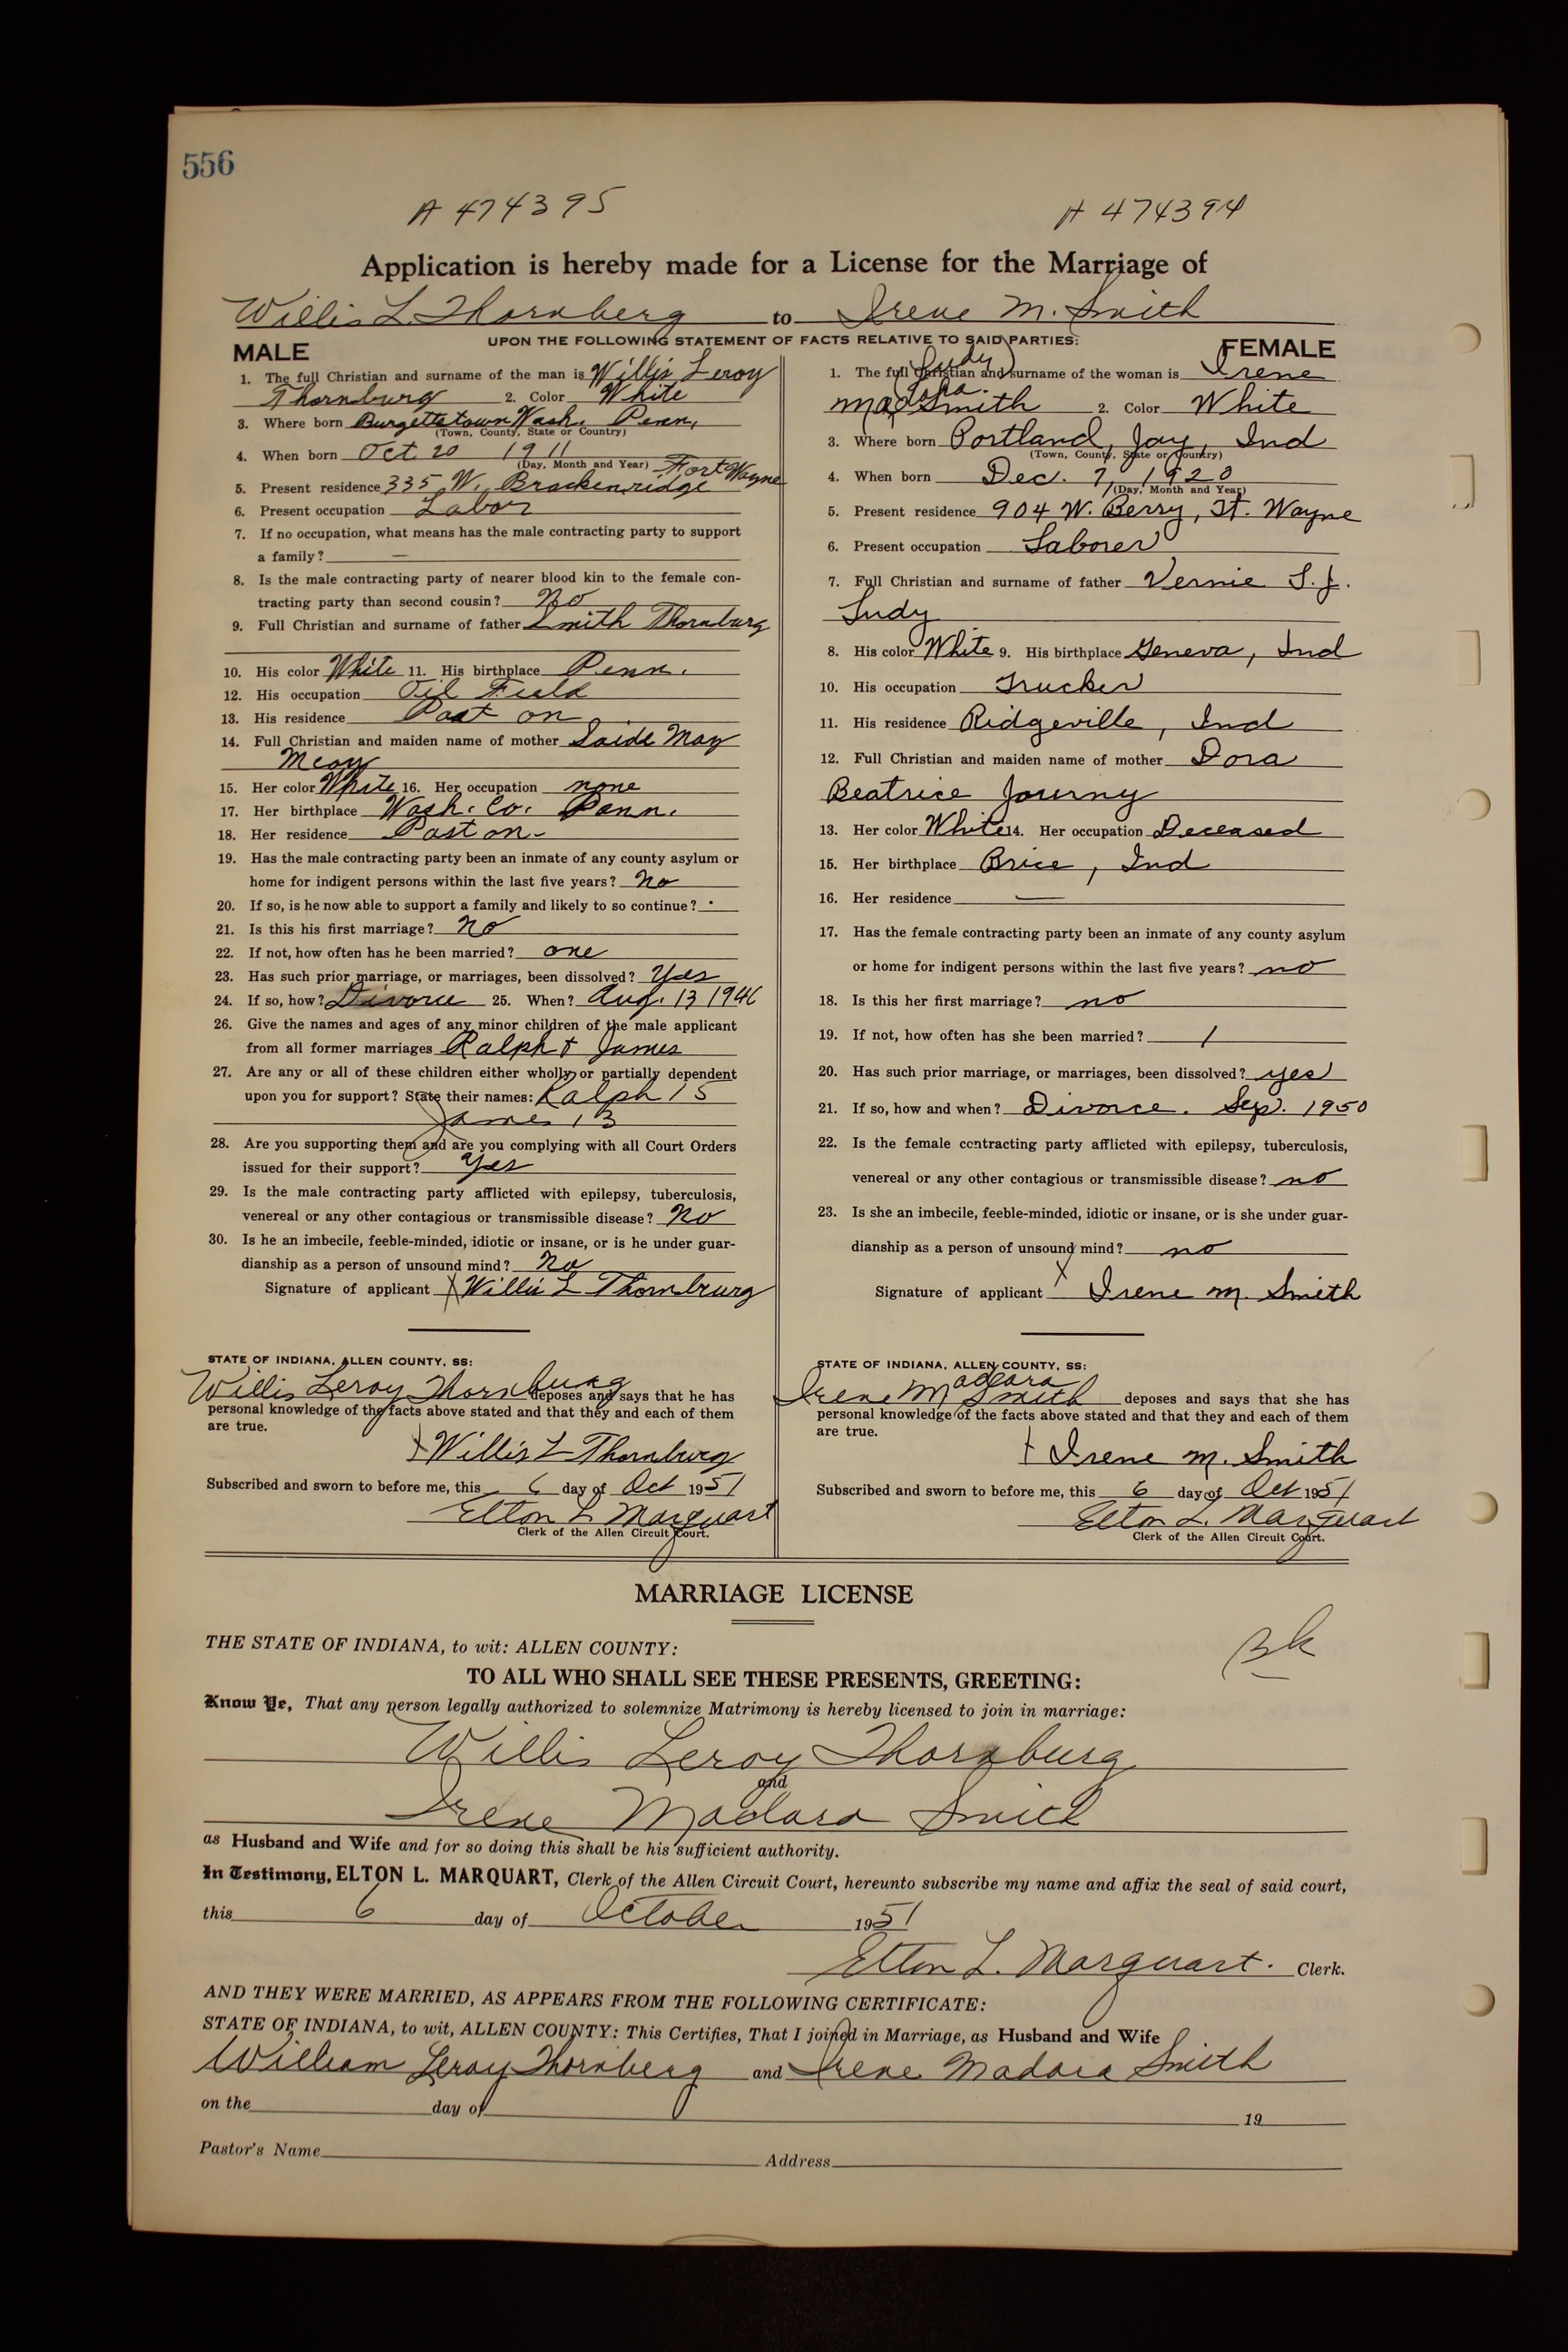 556
A 474395
A 474394
Application is hereby made for a License for the Marriage of
Willis L. Thornberg to Irene M. Smith
UPON THE FOLLOWING STATEMENT OF FACTS RELATIVE TO SAID PARTIES:
MALE
1. The full Christian and surname of the man is Willis Leroy
Thornburg 2. Color White
3. Where born Burgettstown Wash. Penn.
(Town, County, State or Country)
4. When born Oct 20 1911
(Day, Month and Year) Fort Wayne
5. Present residence 335 W. Brackenridge
6. Present occupation Labor
7. If no occupation, what means has the male contracting party to support
a family? —
8. Is the male contracting party of nearer blood kin to the female con-
tracting party than second cousin? No
9. Full Christian and surname of father Smith Thornburg
10. His color White 11. His birthplace Penn.
12. His occupation Oil Field
13. His residence Past on
14. Full Christian and maiden name of mother Saide May
Mcoy
15. Her color White 16. Her occupation none
17. Her birthplace Wash. Co. Penn.
18. Her residence Past on -
19. Has the male contracting party been an inmate of any county asylum or
home for indigent persons within the last five years? No
20. If so, is he now able to support a family and likely to so continue?
21. Is this his first marriage? No
22. If not, how often has he been married? one
23. Has such prior marriage, or marriages, been dissolved? Yes
24. If so, how? Divorce 25. When? Aug. 13 1946
26. Give the names and ages of any minor children of the male applicant
from all former marriages Ralph & James
27. Are any or all of these children either wholly or partially dependent
upon you for support? State their names: Ralph 15
James 13
28. Are you supporting them and are you complying with all Court Orders
issued for their support? Yes
29. Is the male contracting party afflicted with epilepsy, tuberculosis,
venereal or any other contagious or transmissible disease? No
30. Is he an imbecile, feeble-minded, idiotic or insane, or is he under guar-
dianship as a person of unsound mind? No
Signature of applicant X Willis L Thornburg
STATE OF INDIANA, ALLEN COUNTY, SS:
Willis Leroy Thornburg deposes and says that he has
personal knowledge of the facts above stated and that they and each of them
are true.
X Willis L Thornburg
Subscribed and sworn to before me, this 6 day of Oct 1951
Elton L Marquart
Clerk of the Allen Circuit Court.
FEMALE
(Judy)
1. The full Christian and surname of the woman is Irene
Madora Smith 2. Color White
3. Where born Portland, Jay, Ind
(Town, County, State or Country)
4. When born Dec. 7, 1920
(Day, Month and Year)
5. Present residence 904 W. Berry, Ft. Wayne
6. Present occupation Laborer
7. Full Christian and surname of father Vernie S. J.
Judy
8. His color White 9. His birthplace Geneva, Ind
10. His occupation Trucker
11. His residence Ridgeville, Ind
12. Full Christian and maiden name of mother Dora
Beatrice Journy
13. Her color White 14. Her occupation Deceased
15. Her birthplace Brice, Ind
16. Her residence —
17. Has the female contracting party been an inmate of any county asylum
or home for indigent persons within the last five years? no
18. Is this her first marriage? no
19. If not, how often has she been married? 1
20. Has such prior marriage, or marriages, been dissolved? yes
21. If so, how and when? Divorce. Sep. 1950
22. Is the female contracting party afflicted with epilepsy, tuberculosis,
venereal or any other contagious or transmissible disease? no
23. Is she an imbecile, feeble-minded, idiotic or insane, or is she under guar-
dianship as a person of unsound mind? no
Signature of applicant X Irene M. Smith
STATE OF INDIANA, ALLEN COUNTY, SS:
Irene Madora Smith deposes and says that she has
personal knowledge of the facts above stated and that they and each of them
are true.
X Irene M. Smith
Subscribed and sworn to before me, this 6 day of Oct 1951
Elton L. Marquart
Clerk of the Allen Circuit Court.
MARRIAGE LICENSE
THE STATE OF INDIANA, to wit: ALLEN COUNTY:
TO ALL WHO SHALL SEE THESE PRESENTS, GREETING:
Know Ye, That any person legally authorized to solemnize Matrimony is hereby licensed to join in marriage:
Willis Leroy Thornburg
and
Irene Madora Smith
as Husband and Wife and for so doing this shall be his sufficient authority.
In Testimony, ELTON L. MARQUART, Clerk of the Allen Circuit Court, hereunto subscribe my name and affix the seal of said court,
this 6 day of October 1951
Elton L. Marquart. Clerk.
AND THEY WERE MARRIED, AS APPEARS FROM THE FOLLOWING CERTIFICATE:
STATE OF INDIANA, to wit, ALLEN COUNTY: This Certifies, That I joined in Marriage, as Husband and Wife
William Leroy Thornberg and Irene Madora Smith
on the day of 19
Pastor's Name Address